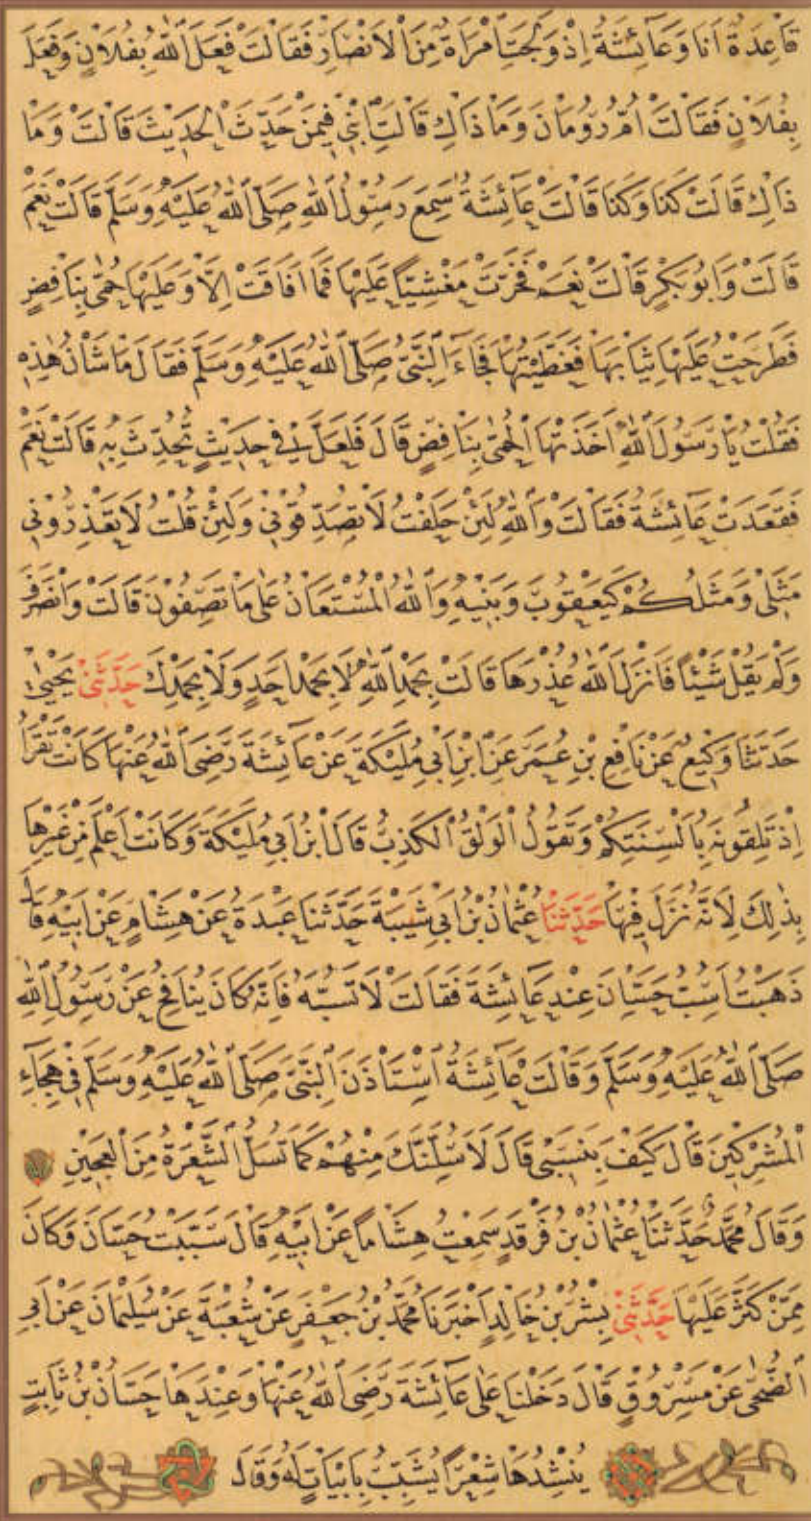 قَاعِدَةٌ اَنَا وَعَائِشَةُ اِذْ وَلَجَتِ امْرَاَةٌ مِنَ الْاَنْصَارِ فَقَالَتْ فَعَلَ اللّٰهُ بِفُلَانٍ وَفَعَلَ
بِفُلَانٍ فَقَالَتْ اُمُّ رُومَانَ وَمَا ذَاكِ قَالَتِ ابْنِي فِيمَنْ حَدَّثَ الْحَدِيثَ قَالَتْ وَمَا
ذَاكِ قَالَتْ كَذَا وَكَذَا قَالَتْ عَائِشَةُ سَمِعَ رَسُولُ اللّٰهِ صَلَّى اللّٰهُ عَلَيْهِ وَسَلَّمَ قَالَتْ نَعَمْ
قَالَتْ وَاَبُو بَكْرٍ قَالَتْ نَعَمْ فَخَرَّتْ مَغْشِيًّا عَلَيْهَا فَمَا اَفَاقَتْ اِلَّا وَعَلَيْهَا حُمَّى بِنَافِضٍ
فَطَرَحْتُ عَلَيْهَا ثِيَابَهَا فَغَطَّيْتُهَا فَجَاءَ النَّبِيُّ صَلَّى اللّٰهُ عَلَيْهِ وَسَلَّمَ فَقَالَ مَا شَاْنُ هٰذِهِ
فَقُلْتُ يَا رَسُولَ اللّٰهِ اَخَذَتْهَا الْحُمَّى بِنَافِضٍ قَالَ فَلَعَلَّ فِي حَدِيثٍ تُحُدِّثَ بِهِ قَالَتْ نَعَمْ
فَقَعَدَتْ عَائِشَةُ فَقَالَتْ وَاللّٰهِ لَئِنْ حَلَفْتُ لَا تُصَدِّقُونِي وَلَئِنْ قُلْتُ لَا تَعْذِرُونِي
مَثَلِي وَمَثَلُكُمْ كَيَعْقُوبَ وَبَنِيهِ وَاللّٰهُ الْمُسْتَعَانُ عَلٰى مَا تَصِفُونَ قَالَتْ وَانْصَرَفَ
وَلَمْ يَقُلْ شَيْئًا فَاَنْزَلَ اللّٰهُ عُذْرَهَا قَالَتْ بِحَمْدِ اللّٰهِ لَا بِحَمْدِ اَحَدٍ وَلَا بِحَمْدِكَ حَدَّثَنِي يَحْيٰى
حَدَّثَنَا وَكِيعٌ عَنْ نَافِعِ بْنِ عُمَرَ عَنِ ابْنِ اَبِي مُلَيْكَةَ عَنْ عَائِشَةَ رَضِيَ اللّٰهُ عَنْهَا كَانَتْ تَقْرَاُ
اِذْ تَلِقُونَهُ بِاَلْسِنَتِكُمْ وَتَقُولُ الْوَلْقُ الْكَذِبُ قَالَ ابْنُ اَبِي مُلَيْكَةَ وَكَانَتْ اَعْلَمَ مِنْ غَيْرِهَا
بِذٰلِكَ لِاَنَّهُ نَزَلَ فِيهَا حَدَّثَنَا عُثْمٰنُ بْنُ اَبِي شَيْبَةَ حَدَّثَنَا عَبْدَةُ عَنْ هِشَامٍ عَنْ اَبِيهِ قَالَ
ذَهَبْتُ اَسُبُّ حَسَّانَ عِنْدَ عَائِشَةَ فَقَالَتْ لَا تَسُبَّهُ فَاِنَّهُ كَانَ يُنَافِحُ عَنْ رَسُولِ اللّٰهِ
صَلَّى اللّٰهُ عَلَيْهِ وَسَلَّمَ وَقَالَتْ عَائِشَةُ اسْتَاْذَنَ النَّبِيَّ صَلَّى اللّٰهُ عَلَيْهِ وَسَلَّمَ فِي هِجَاءِ
الْمُشْرِكِينَ قَالَ كَيْفَ بِنَسَبِي قَالَ لَاَسُلَّنَّكَ مِنْهُمْ كَمَا تُسَلُّ الشَّعْرَةُ مِنَ الْعَجِينِ
وَقَالَ مُحَمَّدٌ حَدَّثَنَا عُثْمٰنُ بْنُ فَرْقَدٍ سَمِعْتُ هِشَامًا عَنْ اَبِيهِ قَالَ سَبَبْتُ حَسَّانَ وَكَانَ
مِمَّنْ كَثَّرَ عَلَيْهَا حَدَّثَنِي بِشْرُ بْنُ خَالِدٍ اَخْبَرَنَا مُحَمَّدُ بْنُ جَعْفَرٍ عَنْ شُعْبَةَ عَنْ سُلَيْمَانَ عَنْ اَبِي
الضُّحٰى عَنْ مَسْرُوقٍ قَالَ دَخَلْنَا عَلٰى عَائِشَةَ رَضِيَ اللّٰهُ عَنْهَا وَعِنْدَهَا حَسَّانُ بْنُ ثَابِتٍ
يُنْشِدُهَا شِعْرًا يُشَبِّبُ بِاَبْيَاتٍ لَهُ وَقَالَ